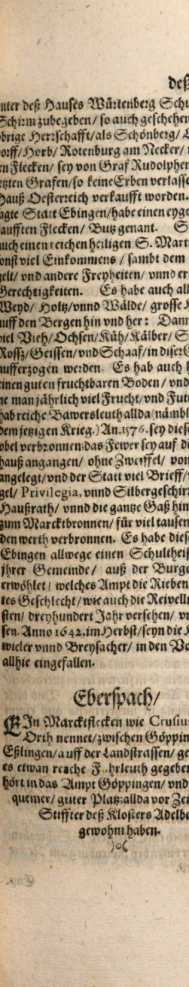 deß
vnter deß Hauses Würtenberg Schu
Schirm zubegeben/ so auch geschehen
brige Herrschafft/ als Schönberg/
orff/ Horb/ Rotenburg am Necker/
n Flecken/ sey von Graf Rudolphen
tzten Grafen/ so keine Erben verlasse
Hauß Oesterreich verkaufft worden.
agte Statt Ebingen/ habe einen eyge
aufften Flecken/ Butz genant. S
auch einen reichen heiligen S. Mart
onst viel Einkommens/ sambt dem
gel/ vnd andere Freyheiten/ vnnd er
Gerechtigkeiten. Es habe auch all
Weyd/ Holtz/ vnnd Wälde/ grosse
auff den Bergen hin vnd her: Dann
viel Vieh/ Ochsen/ Küh/ Kälber/ S
Roß/ Geissen/ vnd Schaaf/ in dieser
aufferzogen werden. Es hab auch
einen guten fruchtbaren Boden/ vnd
ne man jährlich viel Frucht/ vnd Fut
hab reiche Bawersleuth allda (nämbl
dem jetzigen Krieg.) An. 1576. sey diese
obel verbronnen/ das Fewer sey auf di
hauß angangen/ ohne Zweiffel/ von
angelegt/ vnd der Statt viel Brieff/
gel/ Privilegia, vnnd Silbergeschirr
Haußrath/ vnnd die gantze Gaß hin
zum Marcktbronnen/ für viel tausen
den werth verbronnen. Es habe diese
Ebingen allwege einen Schultheiß
jhrer Gemeinde/ auß der Burge
erwöhlet/ welches Ampt die Rieben
tes Geschlecht/ wie auch die Reivelli
sten/ dreyhundert Jahr versehen/ vn
sen. Anno 1642. im Herbst/ seyn die
wieler vnnd Breysacher/ in den Vo
allhie eingefallen.
Eberspach/
EIn Marcktflecken wie Crusius
Orth nennet/ zwischen Göppin
Eßlingen/ auff der Landstrassen/ ge
es etwan reiche Fuhrleuth gegeben
hört in das Ampt Göppingen/ vnd
quemer/ guter Platz: allda vor Zei
Stiffter deß Klosters Adelbe
gewohnt haben.